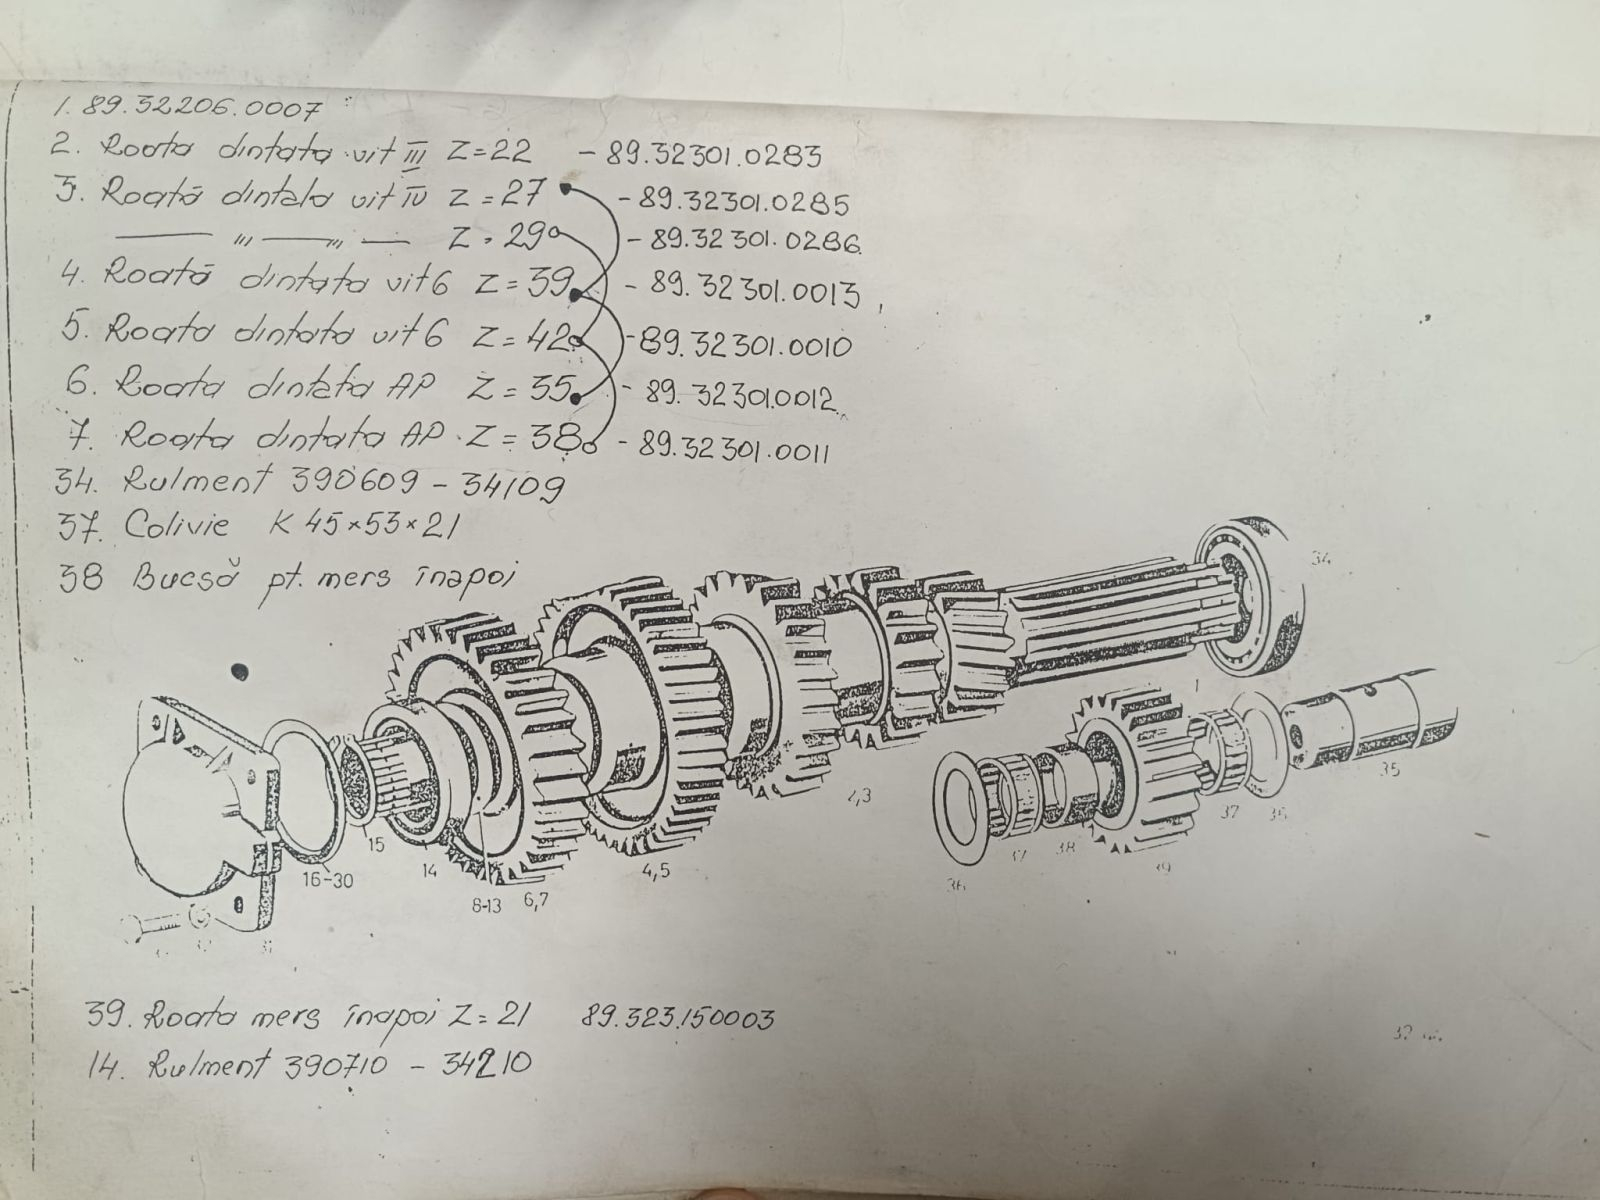 1. 89.32206.0007
2. Roata dintata vit III Z=22 - 89.32301.0283
3. Roată dintata vit IV Z=27 - 89.32301.0285
— "' — "' — Z=29 - 89.32301.0286
4. Roată dintata vit 6 Z=39 - 89.32301.0013
5. Roata dintata vit 6 Z=42 - 89.32301.0010
6. Roata dintata AP Z=35 - 89.32301.0012
7. Roata dintata AP Z=38 - 89.32301.0011
34. Rulment 390609 - 34109
37. Colivie K 45×53×21
38 Bucsă pt. mers înapoi
34
1
35
2,3
37
36
37
38
39
36
15
14
16-30
4,5
8-13
6,7
39. Roata mers înapoi Z=21 89.323.150003
14. Rulment 390710 - 34210